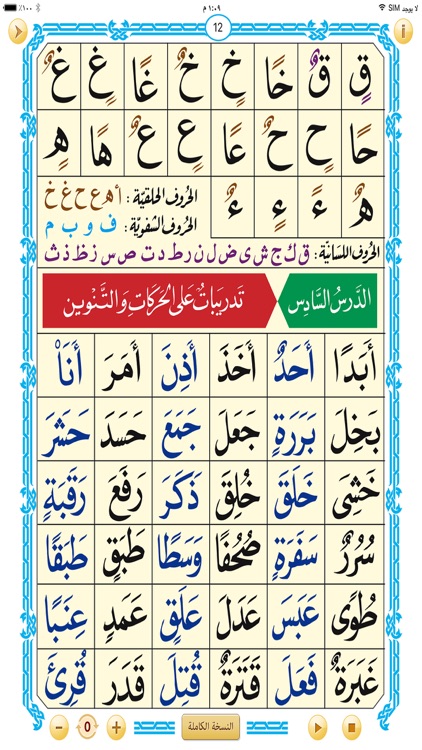 لا يوجد SIM ١:٠٩ م ١٠٠٪
12
قٍ قٌ خًا خٍ خٌ غًا غٍ غٌ
حًا حٍ حٌ عًا عٍ عٌ هًا هٍ
هٌ ءً ءٍ ءٌ
الحُروف الحلقيّة : أ هـ ع ح غ خ
الحُروف الشفويّة : ف و ب م
الحُروف اللسانيّة : ق ك ج ش ي ض ل ن ر ط د ت ص س ز ظ ذ ث
الدَّرسُ السَّادِس تَدريبَاتٌ عَلى الحَركَاتِ وَالتَّنْوين
أَبَدًا أَحَدٌ أَخَذَ أَذِنَ أَمَرَ أَنَاْ
بَخِلَ بَرَرَةٍ جَعَلَ جَمَعَ حَسَدَ حَشَرَ
خَشِيَ خَلَقَ خُلِقَ ذَكَرَ رَفَعَ رَقَبَةٍ
سُرُرٌ سَفَرَةٍ صُحُفًا وَسَطًا طَبَقٍ طَبَقًا
طُوًى عَبَسَ عَدَلَ عَلَقٍ عَمَدٍ عِنَبًا
غَبَرَةٌ فَعَلَ قَتَرَةٌ قُتِلَ قَدَرَ قُرِئَ
− 0 + النسخة الكاملة